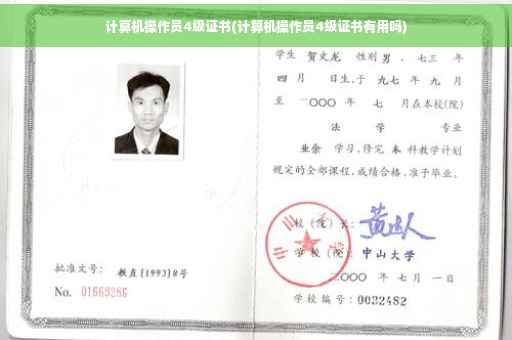 计算机操作员4级证书(计算机操作员4级证书有用吗)
学生 贺文龙 性别 男 、七三 年
四 月 日生,于 九七 年 九 月
至 二〇〇〇 年 七 月在本校(院)
法 学 专业
业余 学习,修完 本 科教学计划
规定的全部课程,成绩合格,准予毕业。
校 (院) 长:
学 校 (院): 中山大学
二〇〇〇 年 七 月 一 日
学校编号: 0032482
批准文号: 教直[1993]8号
No. 01669286